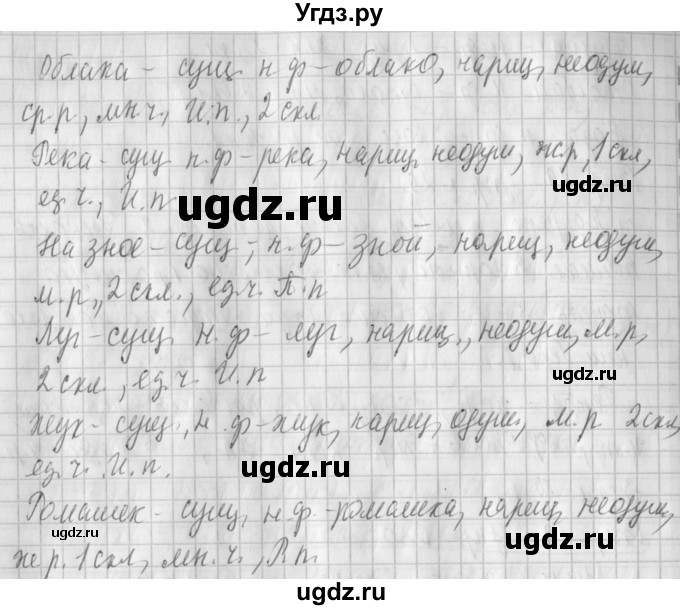 Угдз.ру
Облака - сущ. н.ф - облако, нариц, неодуш,
ср.р, мн.ч, И.п., 2 скл.
Река - сущ. н.ф - река, нариц. неодуш, ж.р, 1 скл,
ugdz.ru
ед.ч., И.п
ugdz.ru
ugdz.ru
На зное - сущ, н.ф - зной, нариц, неодуш,
м.р., 2 скл., ед.ч. П.п
Луг - сущ. н.ф - луг, нариц., неодуш, м.р,
2 скл., ед.ч. И.п
ugdz.ru
Жук - сущ., н.ф - жук, нариц, одуш, м.р 2 скл,
ед.ч. И.п.
ugdz.ru
ugdz.ru
Ромашек - сущ, н.ф - ромашка, нариц, неодуш,
ж.р. 1 скл, мн.ч., Р.п.
ugdz.ru
ugdz.ru
ugdz.ru